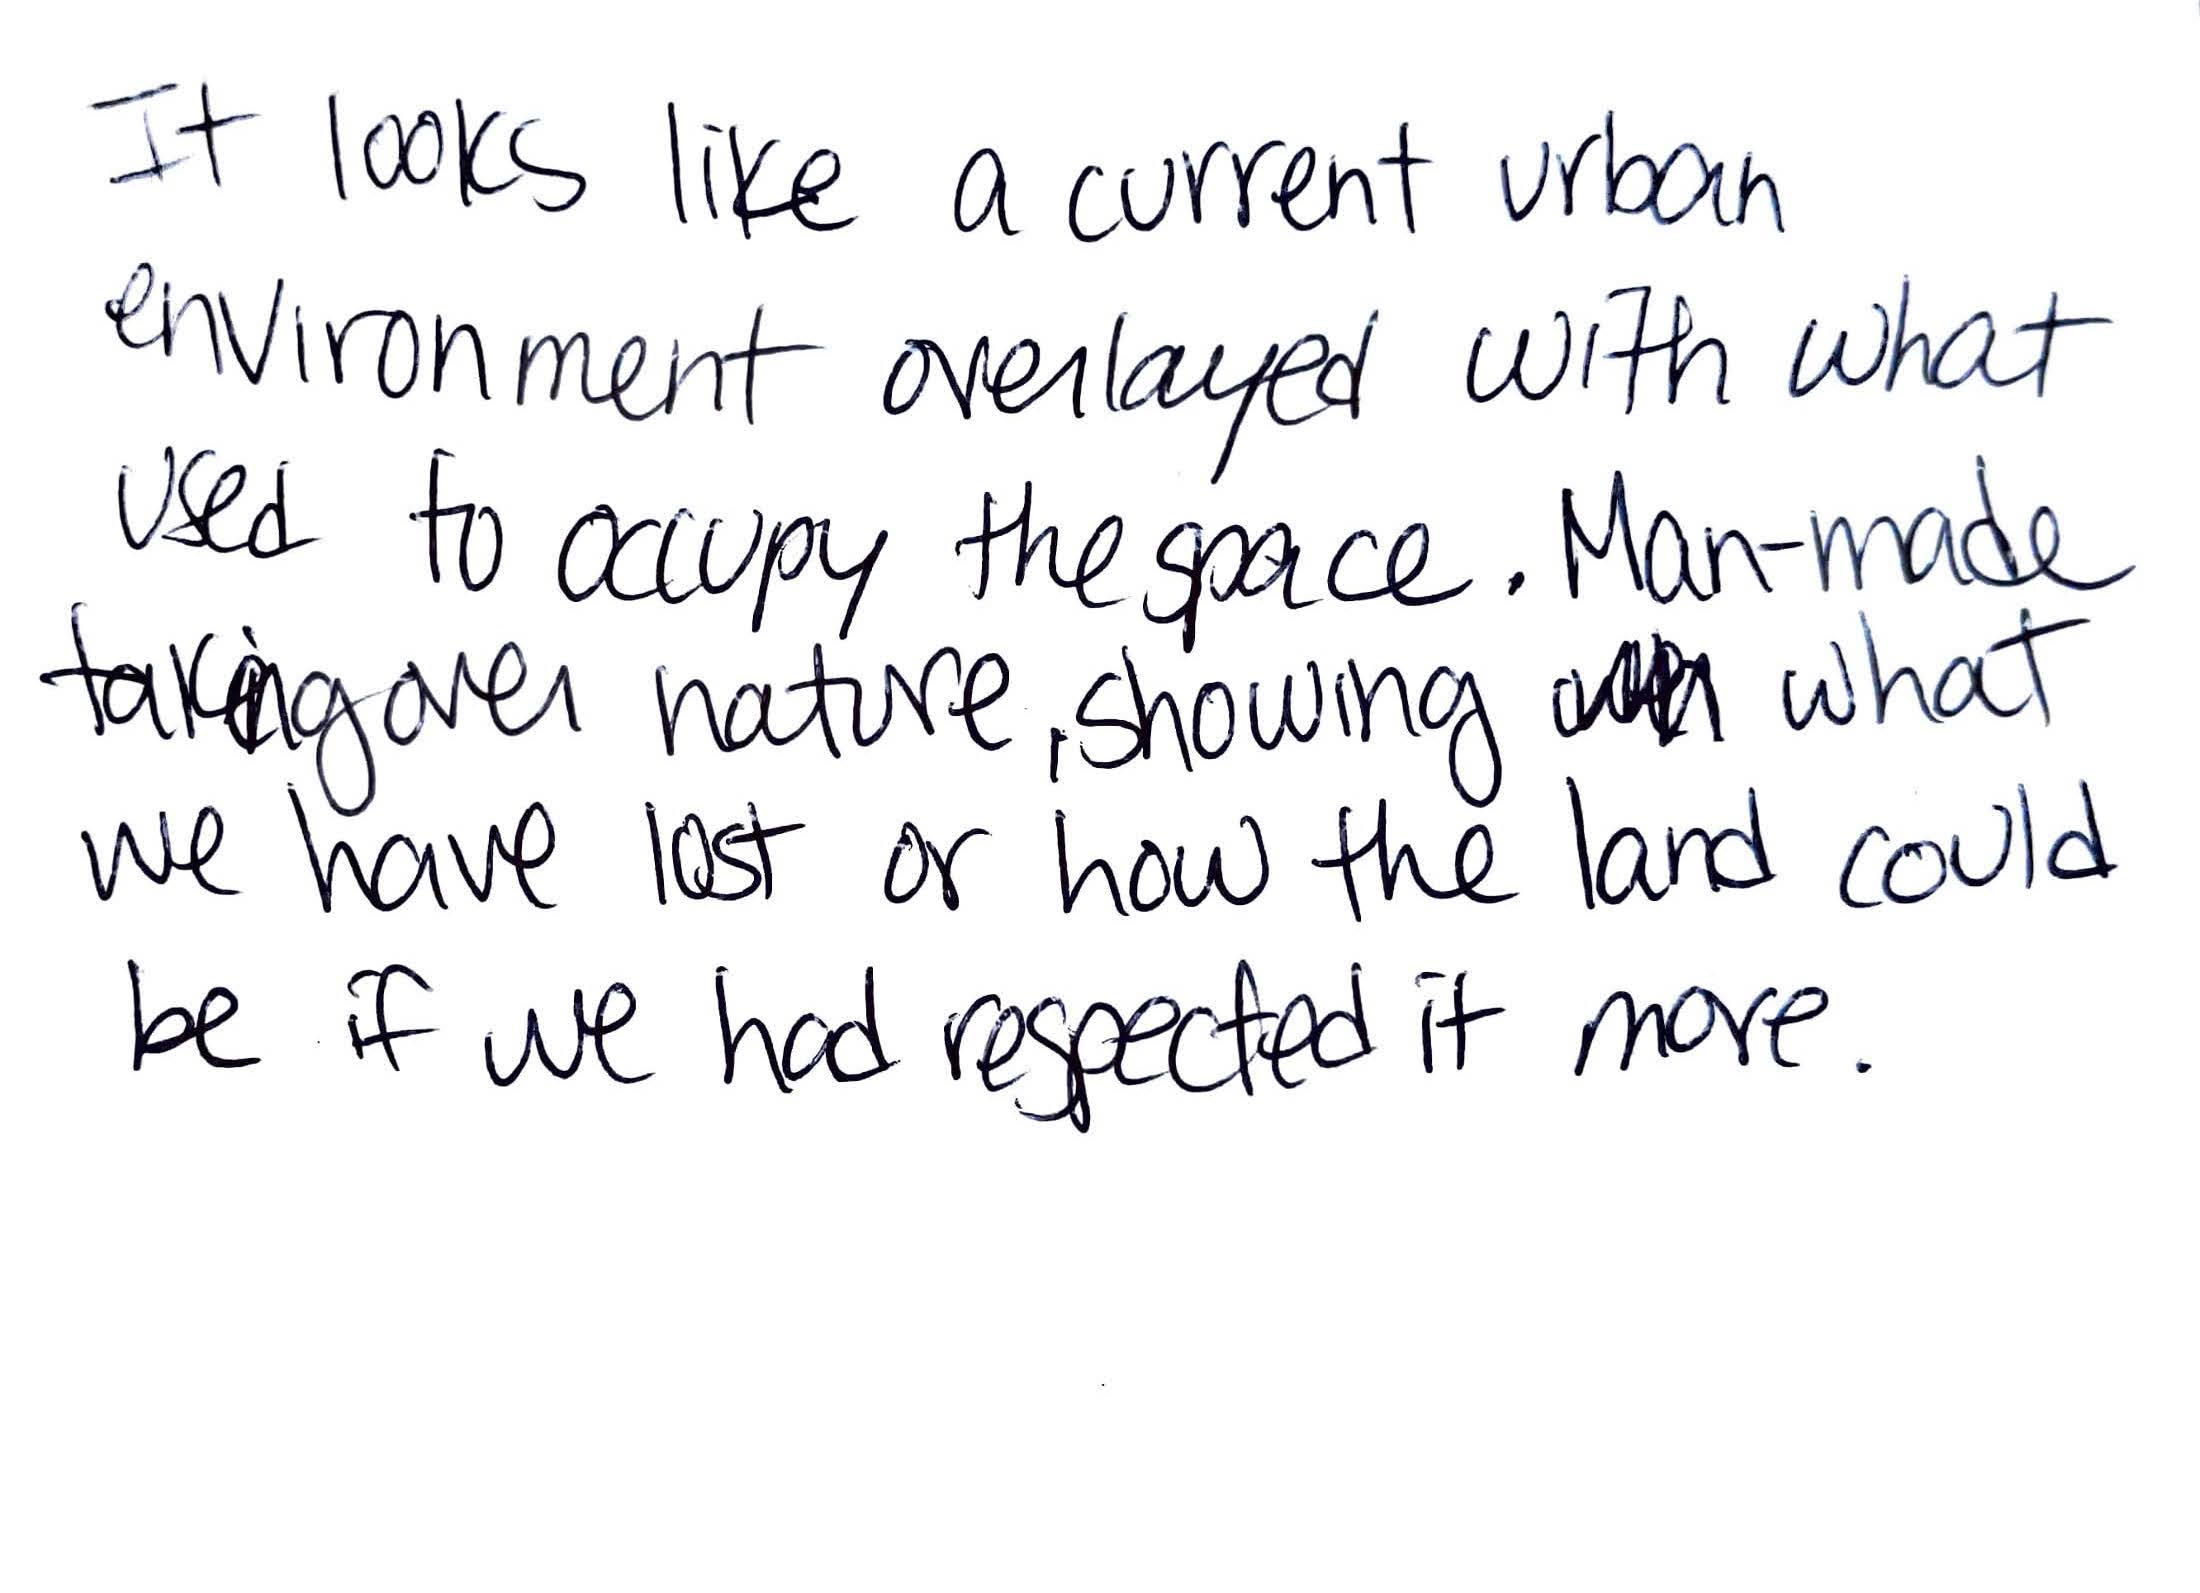 It looks like a current urban
environment overlayed with what
used to occupy the space. Man-made
taking over nature, showing what
we have lost or how the land could
be if we had respected it more.